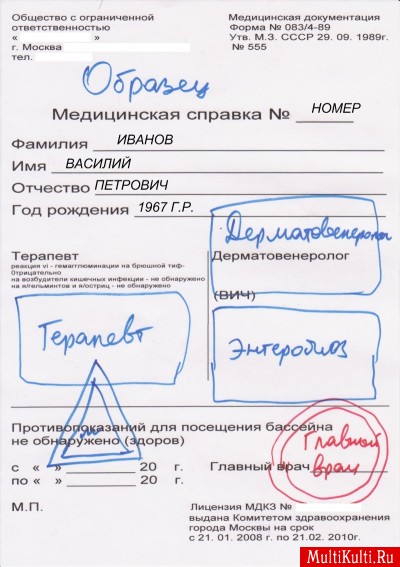 Общество с ограниченной
ответственностью
« »
г. Москва
тел.
Медицинская документация
Форма № 083/4-89
Утв. М.З. СССР 29. 09. 1989г.
№ 555
Образец
Медицинская справка № НОМЕР
Фамилия ИВАНОВ
Имя ВАСИЛИЙ
Отчество ПЕТРОВИЧ
Год рождения 1967 Г.Р.
Дерматовенеролог
Терапевт
реакция vi - гемагглюминации на брюшной тиф-
0трицательно
на возбудители кишечных инфекции - не обнаружено
на я/гельминтов и я/остриц - не обнаружено
Дерматовенеролог
(ВИЧ)
Терапевт
Энтеробиоз
Противопоказаний для посещения бассейна
не обнаружено (здоров)
с « » 20 г.
по « » 20 г.
Главный врач
Главный
врач
М.П.
Лицензия МДКЗ №
выдана Комитетом здравоохранения
города Москвы на срок
с 21. 01. 2008 г. по 21. 02. 2010г.
MultiKulti.Ru